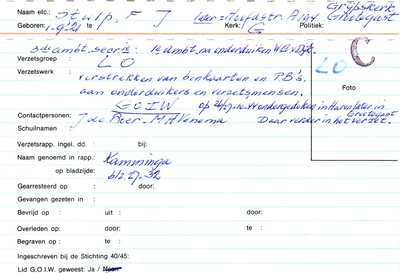 Naam etc.: Stulp, F J Grijpskerk
Geboren: 1-9-21 te Kerk: G Politiek: Grootegast
3de ambt. secr is. 1e ambt. na onderduiken
Verzetsgroep : LO
LO C
Verzetswerk : verstrekken van bonkaarten en P.B's.
aan onderduikers en verzetsmensen.
Foto
GOIW op ondergedoken in Haren later in Grootegast
Contactpersonen: J de Boer - M A Venema Daar verder in het verzet.
Schuilnaam :
Verzetsrapp. ingel. dd. : bij:
Naam genoemd in rapp.: Kamminga
op bladzijde: blz. 27-32
Gearresteerd op : door:
Gevangen gezeten in :
Bevrijd op : uit : door:
Overleden op: door: te :
Begraven op : te :
Ingeschreven bij de Stichting 40/45:
Lid G.O.I.W. geweest: Ja / Neen